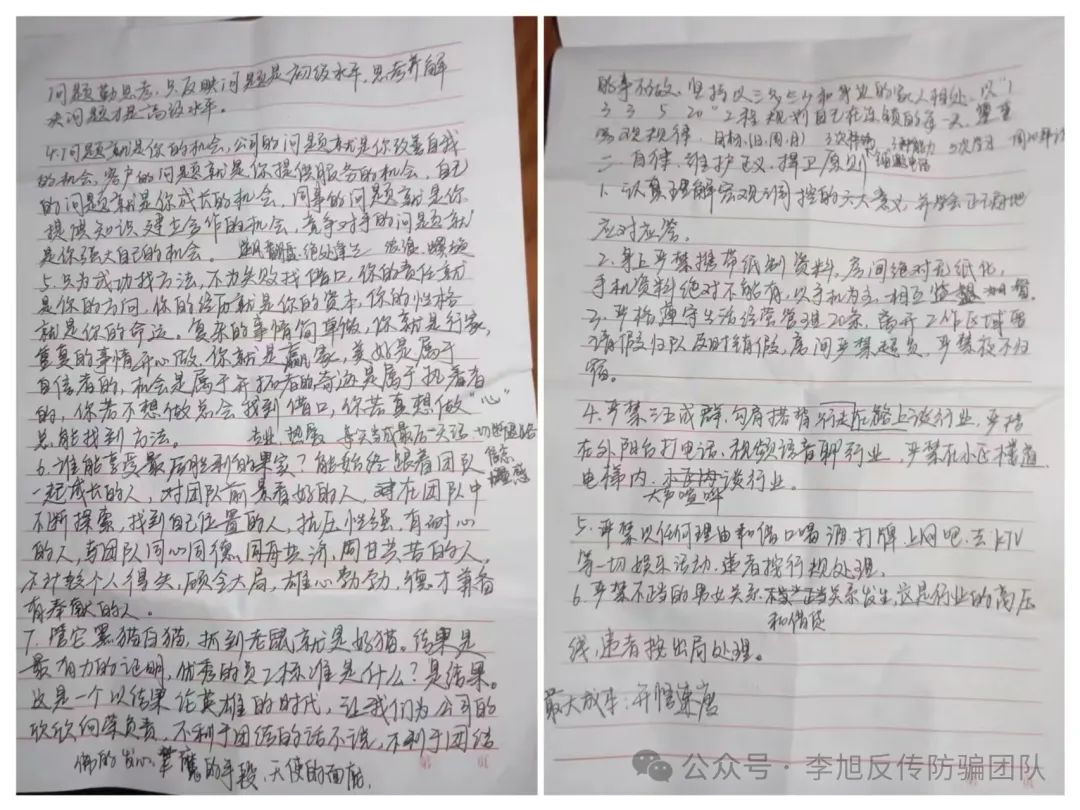 问题勤思考，只反映问题是初级水平，思考并解
决问题才是高级水平。
4.问题就是你的机会，公司的问题就是你改善自我
的机会，客户的问题就是你提供服务的机会，自己
的问题就是你成长的机会，同事的问题就是你
提供知识建立合作的机会，竞争对手的问题就
是你强大自己的机会。 逆风翻盘，绝处逢生
5.只为成功找方法，不为失败找借口，你的责任就
是你的方向，你的经历就是你的资本，你的性格
就是你的命运。复杂的事情简单做，你就是行家，
重复的事情开心做，你就是赢家，美好是属于
自信者的，机会是属于开拓者的，奇迹是属于执着者
的，你若不想做总会找到借口，你若真想做“心”
总能找到方法。 专业，热爱 每天当成最后一天活，切断退路
6.谁能享受最后胜利的果实？能始终跟着团队
一起成长的人，对团队前景看好的人，在团队中
不断探索，找到自己位置的人，抗压性强，有耐心
的人，与团队同心同德、同舟共济，同甘共苦的人，
不计较个人得失，顾全大局，雄心勃勃，德才兼备
有奉献的人。
7.管它黑猫白猫，抓到老鼠就是好猫。结果是
最有力的证明，优秀的员工标准是什么？是结果。
这是一个以结果论英雄的时代，让我们为公司的
欣欣向荣负责，不利于团结的话不说，不利于团结
佛的发心，魔的手段，天使的面庞
的事不做，坚持以三多三少和事业的家人相处，以“1
3 3 5 20”工程规划自己在连锁的每一天，
二、自律、维护正义、捍卫原则
1.认真理解宏观调控的六大意义，并学会正确地
应对应管。
2.身上严禁携带纸制资料，房间绝对无纸化，
手机资料绝对不能有，以手机为主，相互
3.严格遵守生活经营管理20条，离开工作区域要
请假归队及时销假，房间严禁超员，严禁夜不归
宿。
4.严禁三五成群，勾肩搭背行走在路上谈行业，严禁
在外阳台打电话、视频语音聊行业，严禁在小区楼道
电梯内大声喧哗谈行业。
5.严禁以任何理由和借口喝酒打牌上网吧、去KTV
等一切娱乐活动，违者按行规处理。
6.严禁不正当的男女关系和借贷关系发生，这是行业的高压
线，违者按出局处理。
最大成本：开悟速度
公众号·李旭反传防骗团队